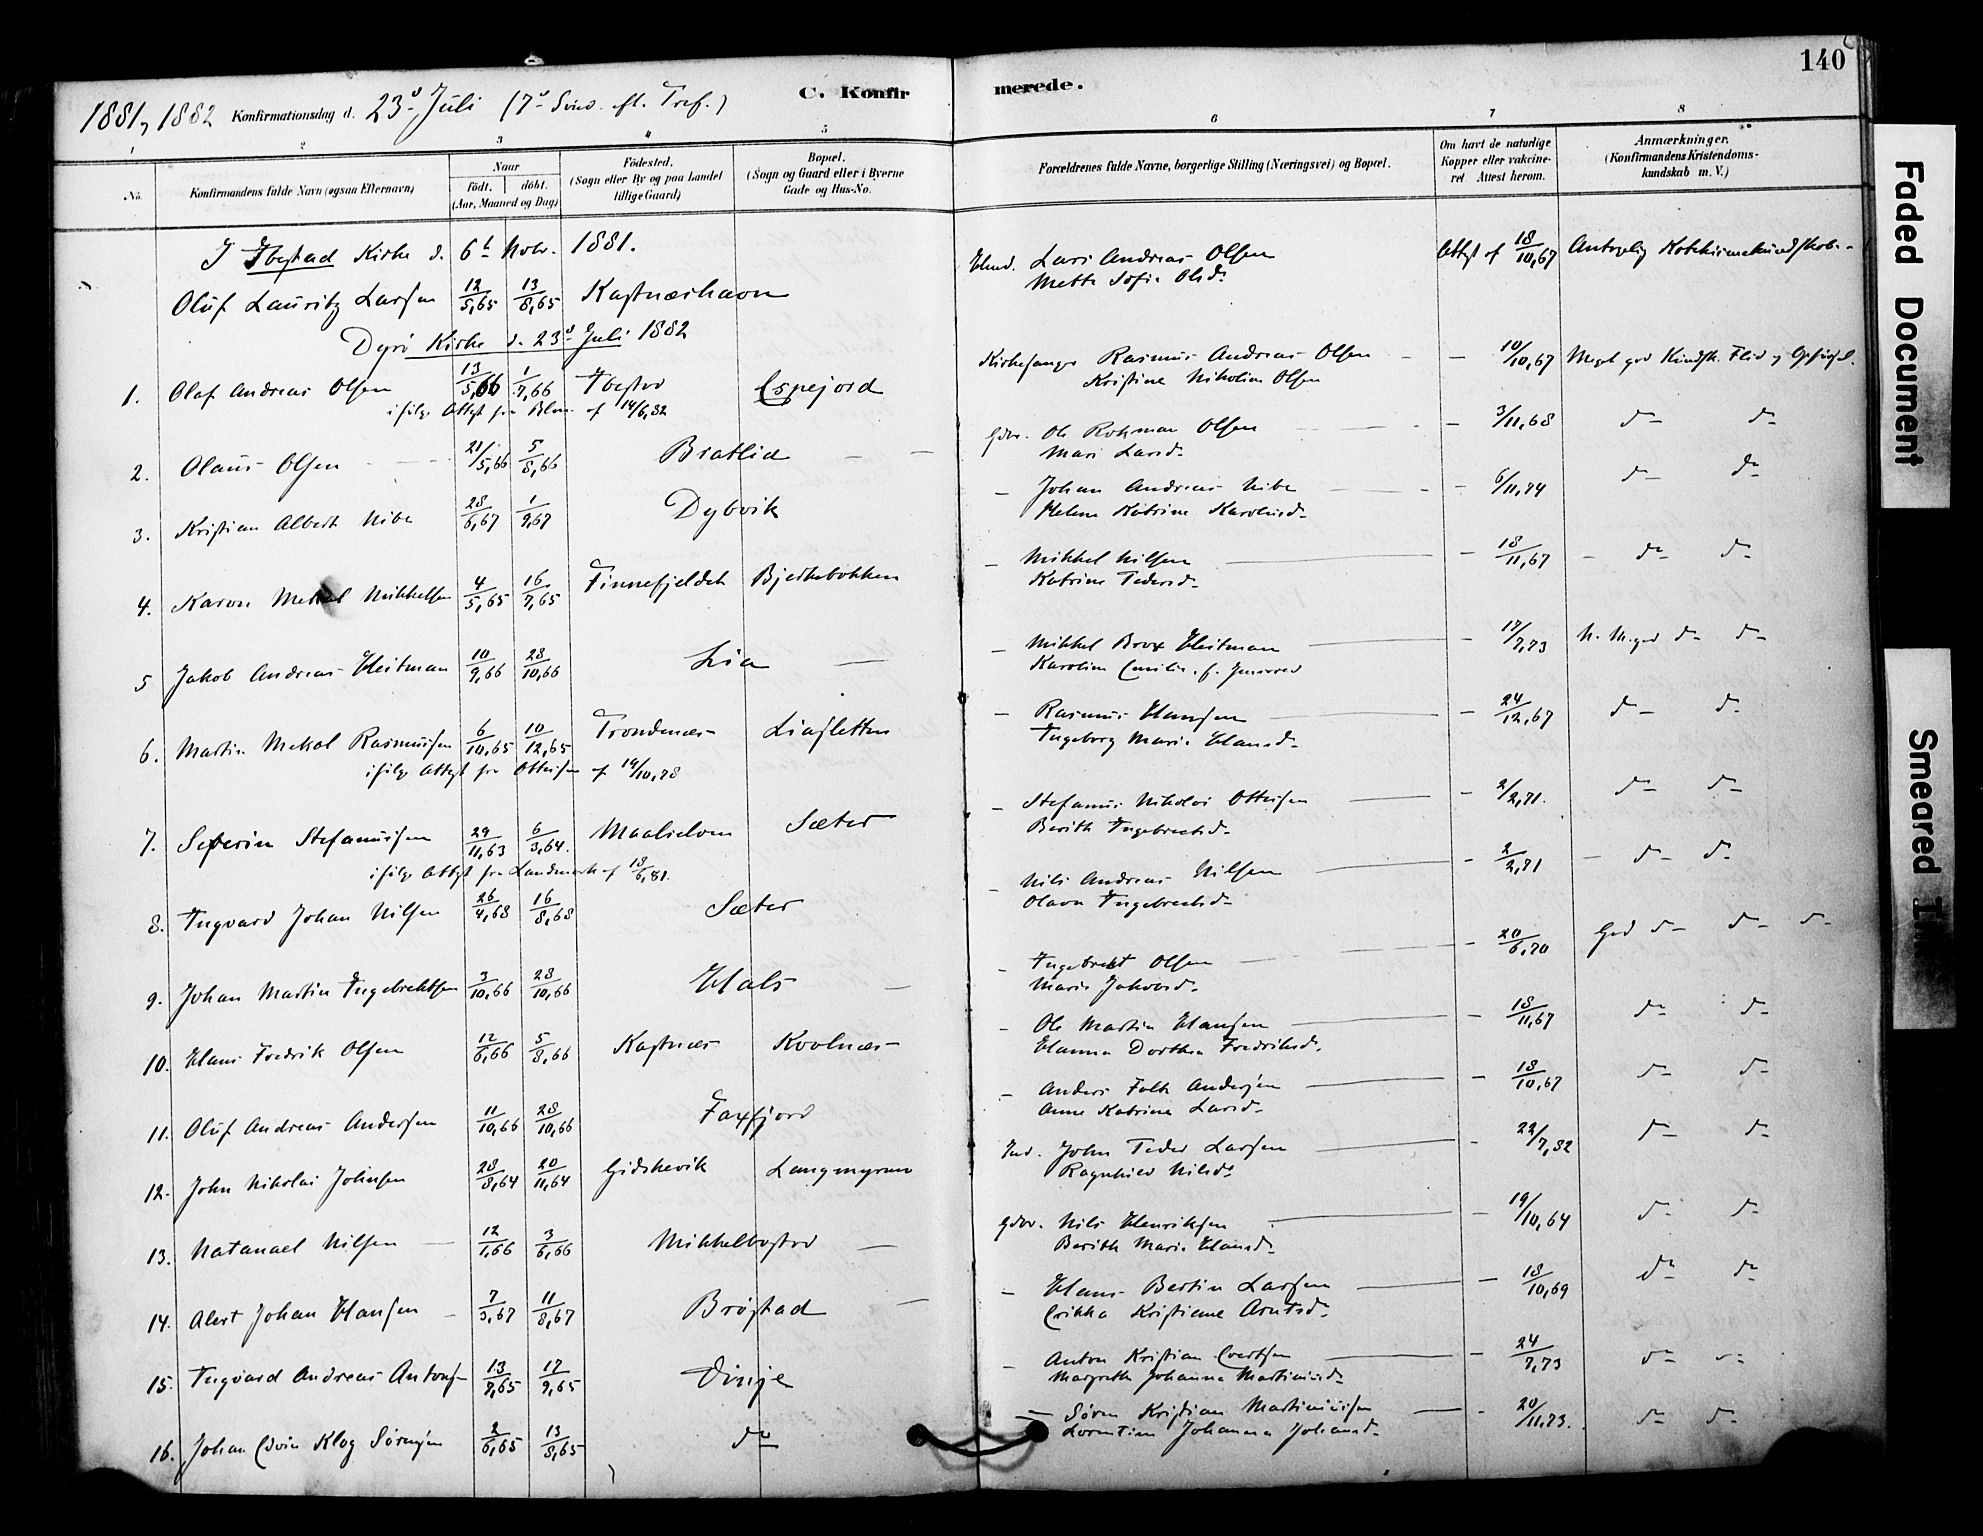 140
1881, 1882 Konfirmationsdag d. 23d Juli (7de Sønd. ft. Tref.)
C. Konfirmerede.
1 2 3 4 5 6 7 8
No.
Konfirmandens fulde Navn (ogsaa Efternavn)
Naar
födt. döbt.
(Aar, Maaned og Dag)
Födested.
(Sogn eller By og paa Landet
tillige Gaard)
Bopæl.
(Sogn og Gaard eller i Byerne
Gade og Hus-No.
Forældrenes fulde Navne, borgerlige Stilling (Næringsvei) og Bopæl.
Om havt de naturlige
Kopper eller vakcine-
ret Attest herom.
Anmærkninger.
(Konfirmandens Kristendoms-
kundskab m. V.)
I Ibestad Kirke d. 6te Novbr. 1881.
Oluf Lauritz Larsen 12/5,65 13/8,65 Kastneshavn
Lars Andreas Olsen Attest af 18/10,67
Mette Sofie Olsd.
Dyrö Kirke d. 23d Juli 1882
1. Olaf Andreas Olsen 13/5,66 1/7,66 Ibestad Espejord
Kirkesanger Rasmus Andreas Olsen - 10/10,67 Meget god Kundsk. Flid og Opførsel.
Kristine Nikoline Olsen
ifølge Attest fra af 14/6,82
2. Olaus Olsen 21/5,66 5/8,66 Bratlid
Gdbr. Ole Rokman Olsen - 3/11,68 do do
Mari Larsd.
3. Kristian Albert Nibe 28/6,67 1/9,67 Dybvik
- Johan Andreas Nibe - 6/11,74 do do
Helene Katrine Karolusd.
4. Karon Mekal Mikkelsen 4/5,65 16/7,65 Finnefjeldet Bjerkebakken
- Mikkel Nilsen - 18/11,67 - do do
Katrine Pedersd.
5 Jakob Andreas Heitman 10/9,66 28/10,66 Lia
- Mikkel Brox Heitman - 17/7,73 N. M.god do do
Karoline Emilie f.
6. Martin Mekal Rasmussen 6/10,65 10/12,65 Trondenæs Liasletten
- Rasmus Hansen - 24/12,67 do do
Ingeborg Marie Hansd.
ifølge Attest fra Ottesen af 14/10,78
7. Severin Stefanussen 29/11,63 6/3,64. Maalselven Sæter
- Stefanus Nikolai Ottesen - 2/2,71. do do
Berith Ingebretsd.
ifølge Attest fra Landmark af 18/6,81.
8. Ingvard Johan Nilsen 26/4,68 16/8,68 Sæter
- Nils Andreas Nilsen - 2/2,71 - do do
Olava Ingebretsd.
9. Johan Martin Ingebrektsen 3/10,66 28/10,66 Hals
- Ingebrekt Olsen - 20/6,70 God do do do
Marie Jakobsd.
10. Hans Fredrik Olsen 12/6,66 5/8,66 Kastnæs Kvalnæs
- Ole Martin Hansen - 18/11,67 do do
Hanna Dorthea Fredriksd.
11. Oluf Andreas Andersen 11/10,66 28/10,66 Faxfjord
- Anders Falk Andersen - 18/10,67 do do
Anne Katrine Larsd.
12. John Nikolai Johnsen 28/8,64 20/11,64 Gidskevik Langmyren
Ind. John Peder Larsen - 22/7,82 do do
Ragnhild Nilsd.
13. Natanael Nilsen 12/1,66 3/6,66 Mikkelbostad
Gdbr. Nils Henriksen - 19/10,64 do do
Berith Marie Hansd.
14. Alert Johan Hansen 7/3,67 11/8,67 Brøstad
- Hans Bertin Larsen - 18/10,69 do do
Erikka Kristiane Arntsd.
15. Ingvard Andreas Antons. 13/7,65 17/9,65 Vinje
- Anton Kristian Evertsen - 24/7,73 do do
Margrethe Johanna Martinusd.
16. Johan Edvin Klog Sørensen 2/6,65 13/8,65 do
- Søren Kristian Martinussen - 20/11,73. do do
Lorentine Johanna Johansd.
Faded Document
Smeared